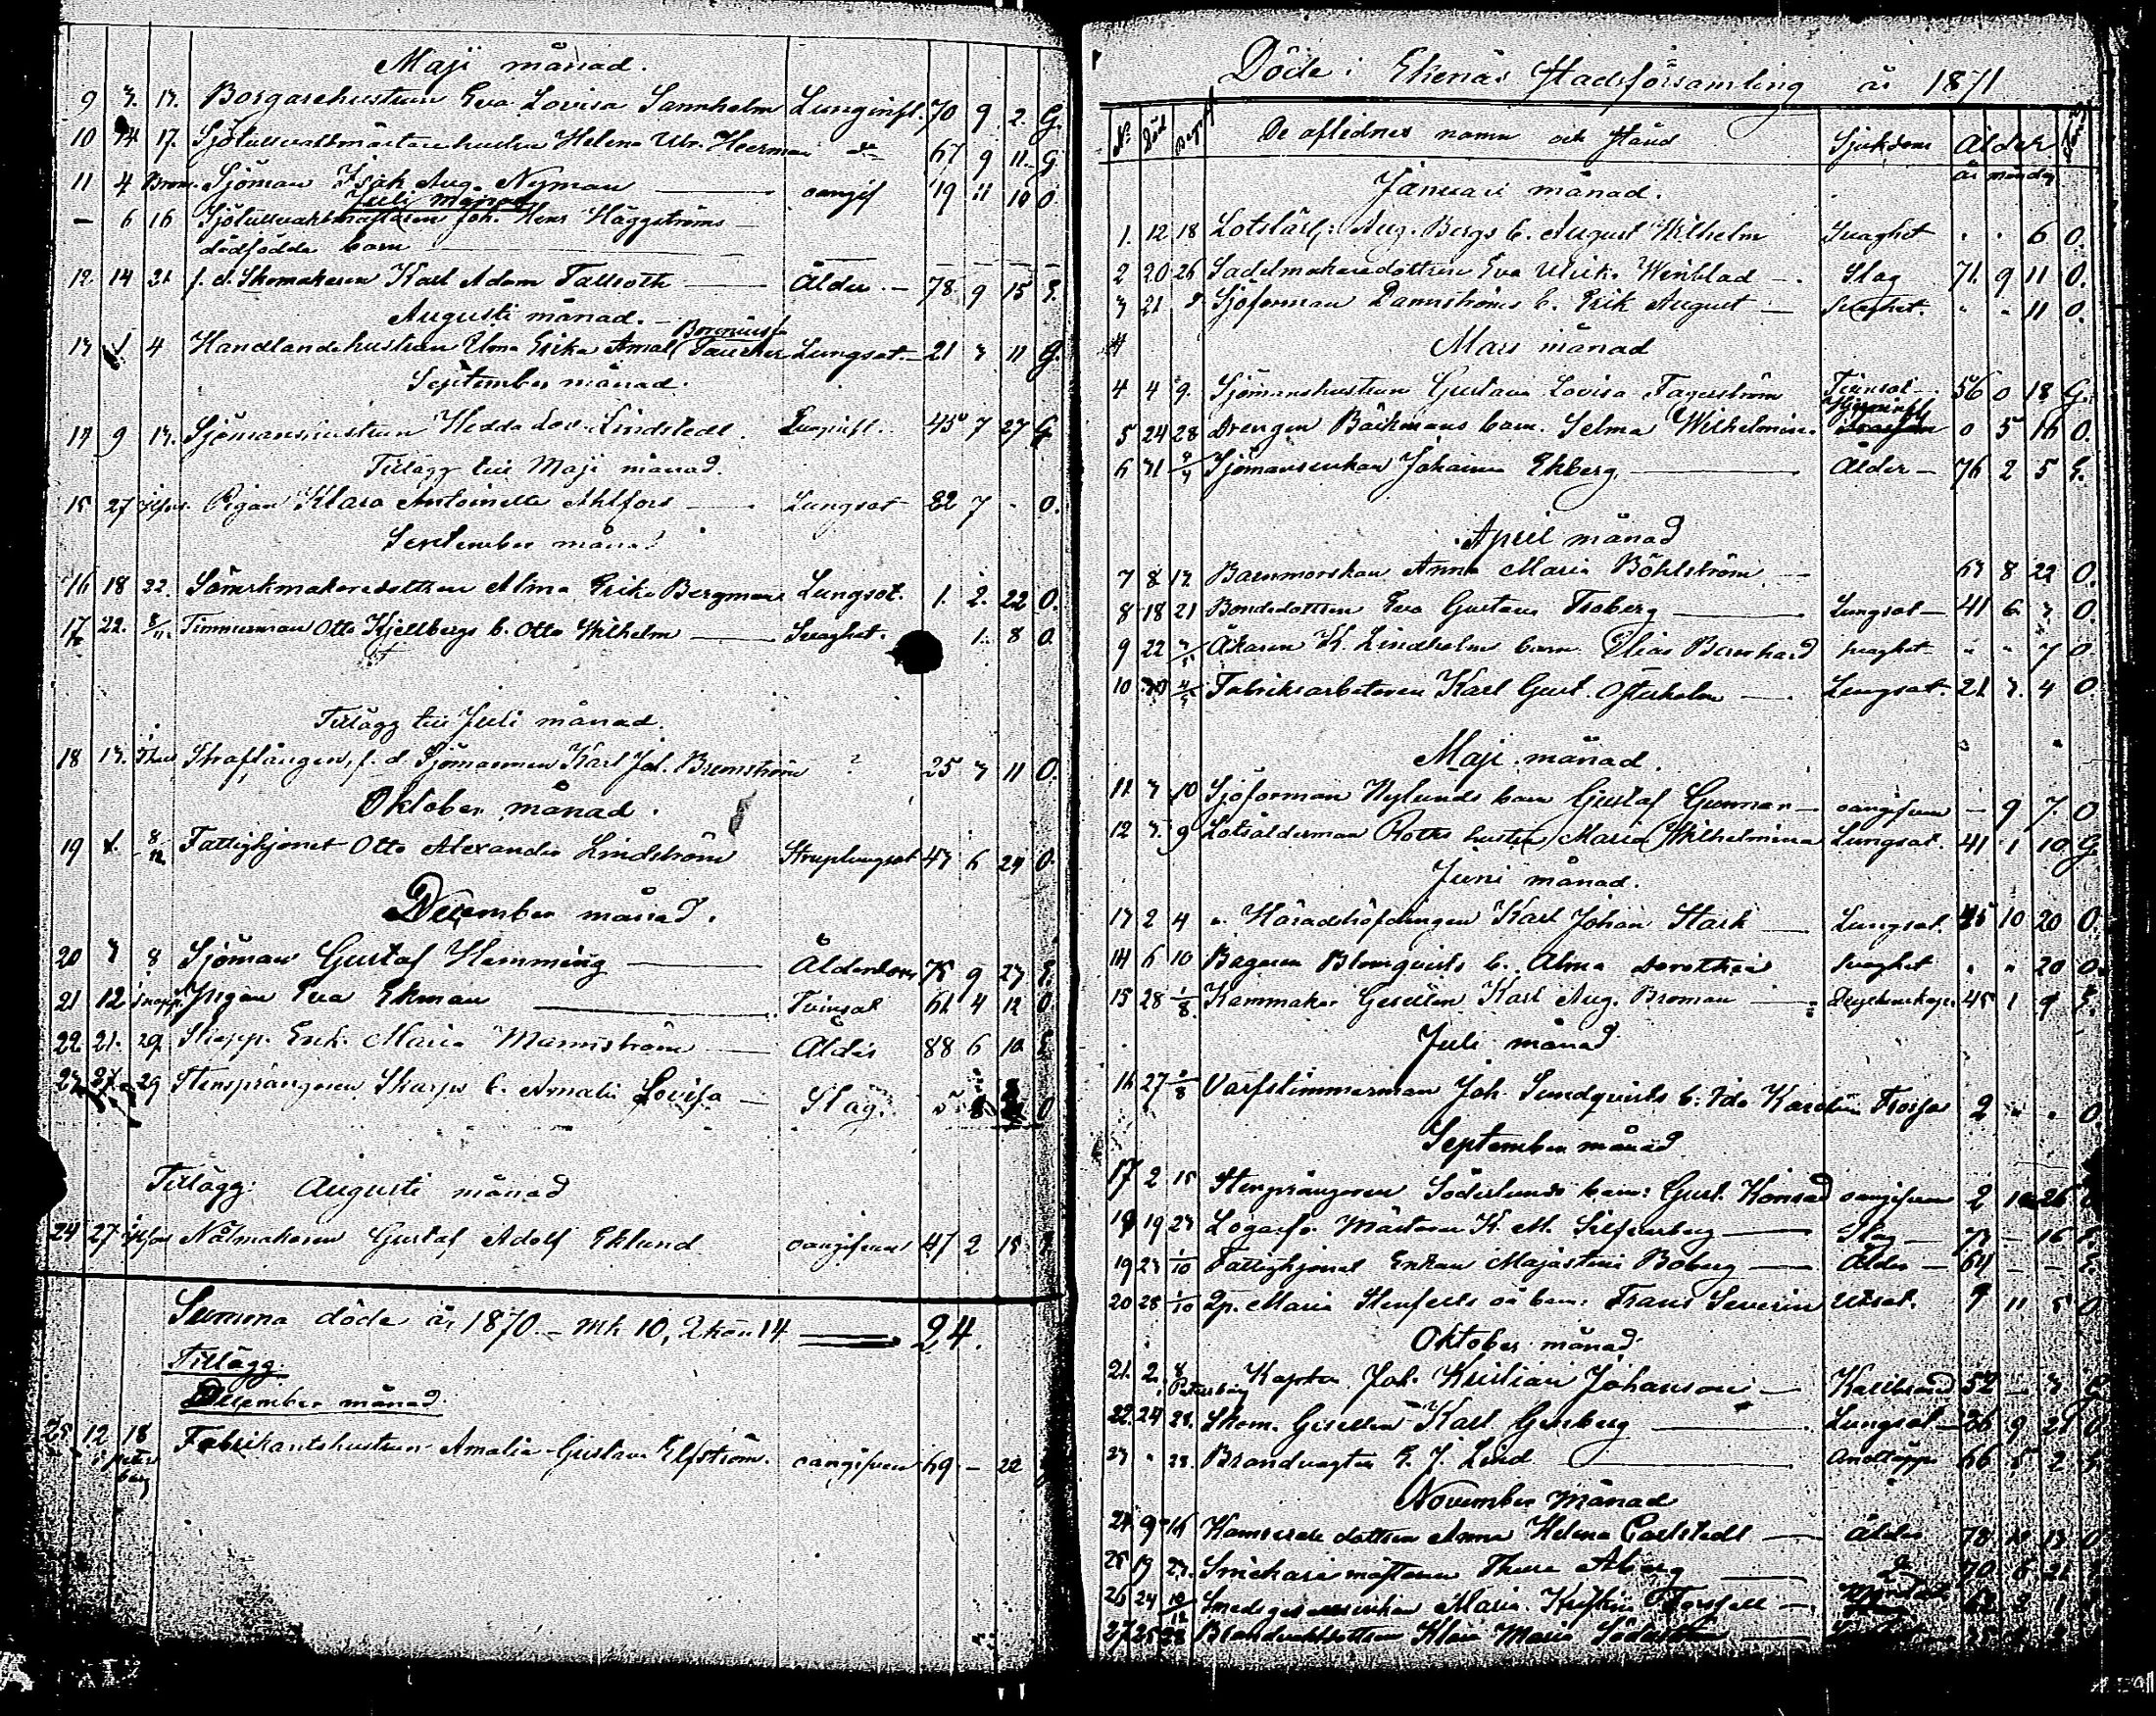 Maji månad.
9 3. 13. Borgarehustrun Eva Lovisa Sannholm Lunginfl. 70 9 2. G.
10 14 17. Sjötullvaktmästarehustru Helena Ulr. Heerman do 67 9 11. G
11 4 Brom. Sjöman Isak Aug. Nyman — oangif 19 11 10 O.
Juli månad
— 6 16 Sjötullvaktmästaren Joh. Henr Häggströms —
dödfödda barn — — — — —
12. 14 21 f. d. Skomakaren Karl Adam Tallroth — Ålder — 78 9 15 E.
Augusti månad. —
13 1 4 Handlandehustrun Ulma Erika Amal (Taucher Lungsot. — 21 3 11 G.
September månad.
14 9 13. Sjömanshustrun Hedda Lov. Lindstedt. Lunginfl. 45 7 27 G
Tillägg till Maji månad.
15 27 Pigan Klara Antoinette Ahlfors — Lungsot 22 7 - O.
September månad
16 18 22. Sämskmakaredottren Alma Erika Bergman Lungsot. 1. 2. 22 O.
17 22. 8/11. Timmerman Otto Kjellbergs b. Otto Wilhelm — Svaghet. 1. 8 O.
Tillägg till Juli månad.
18 13. Straffången, f. d. Sjömannen Karl Joh. Bremström ? 25 3 11 O.
Oktober månad.
19 1. 8/12 Fattighjonet Otto Alexander Lindström Struplungsot 43 6 24 O.
December månad.
20 3 8 Sjöman Gustaf Hemming — Ålderdom 75 9 23 E.
21 12 Pigan Eva Ekman — Tvinsot 61 4 12 O.
22. 21. 29. Skepp. Enk. Maria Mannström — Ålder 88 6 10 E.
23 27. 29 Stensprängaren Skarps b. Amalia Lovisa — Slag.
Tillägg: Augusti månad
24 27 Nålmakaren Gustaf Adolf Eklund oangifven 47 2 15
Summa döde år 1870. — Mk 10, Qkön 14 — 24.
Tillägg.
December månad.
25. 12 18 Fabrikantshustrun Amalia Gustava Elfström. oangifven 69 — 22
i Petersburg
Döde i Ekenäs Stadsförsamling år 1871
No Död Begraf De aflidnes namn och stånd Sjukdom Ålder
år mån dag
Januari månad.
1. 12 18 Lotslärl. Aug. Bergs b. August Wilhelm Svaghet " " 6 O.
2 20 26 Sadelmakaredottren Eva Ulrika Winblad — Slag 71. 9 11 O.
3 21 " Sjöforman Dannströms b. Erik August — Svaghet. " " 11 O.
Mars månad
4 4 9. Sjömanshustrun Gustava Lovisa Fagerström Tvinsot — 56 0 18 G.
5 24 28 Drengen Bäckmans barn. Selma Wilhelmina. 0 5 16 O.
6 31 Sjömansenkan Johanna Ekberg — Ålder — 76 2 5 E.
April månad
7 8 13. Barnmorskan Anna Maria Böhlström. — 63 8 22 O.
8 18 21 Bondedottren Eva Gustava Troberg — Lungsot — 41 6 3 O.
9 22 3/5 Åkaren K. Lindholms barn Elias Bernhard Svaghet " " 7 O
10 30 4/5 Fabriksarbetaren Karl Gust. Österholm — Lungsot. 21 3. 4 O
Maji månad.
11 3 10 Sjöforman Nylunds barn Gustaf Gunnar — oangifven — 9 7. O
12 3. 9 Lotsålderman Roths hustru Maria Wilhelmina Lungsot. 41 1 10 G.
Juni månad.
13 2 4 v. Häradshöfdingen Karl Johan Stark — Lungsot. 45 10 20 O.
14 6 10 Bagaren Blomqvists b. Alma Dorothea Svaghet " " 20 O.
15 28 1/8 Kammakar Gesällen Karl Aug. Broman — 45 1 9 E.
Juli månad
16 27 2/8 Varfstimmerman Joh. Sundqvists b. Ida Karolina 2 " " O.
September månad
17 2 15 Stensprängaren Söderlunds barn: Gust. Konrad oangifven 2 10 26
18 19 23 Logarfv. Mästaren K. M. Silfverberg — Slag — 73 — 16
19 23 1/10 Fattighjonet Enkan Majastina Boberg — Ålder — 64 — —
20 28 1/10 Qp. Maria Stenfelts oä barn: Frans Severin Utsot. 9 11 5 O
Oktober månad.
21. 2. 8 Petersburg Kapten Joh. Kristian Johansson — Kallbrand 52 — 3
22. 24 28. Skom. Gesällen Karl Ginsberg — Lungsot — 36 9 21 O
23 " 28. Brandvagten E. J. Lind — Andtäppa 66 5 2
November månad
24 9 16 Kamrerare dottren Anna Helena Carlstedt — Ålder 78
25 19 23. Smickarimästaren Åberg — do 70 6 21
26 24 10/12 Smedsgesällsenkan Maria Kristina Forsell —
27 25 28 Brandvaktsdottren Maria